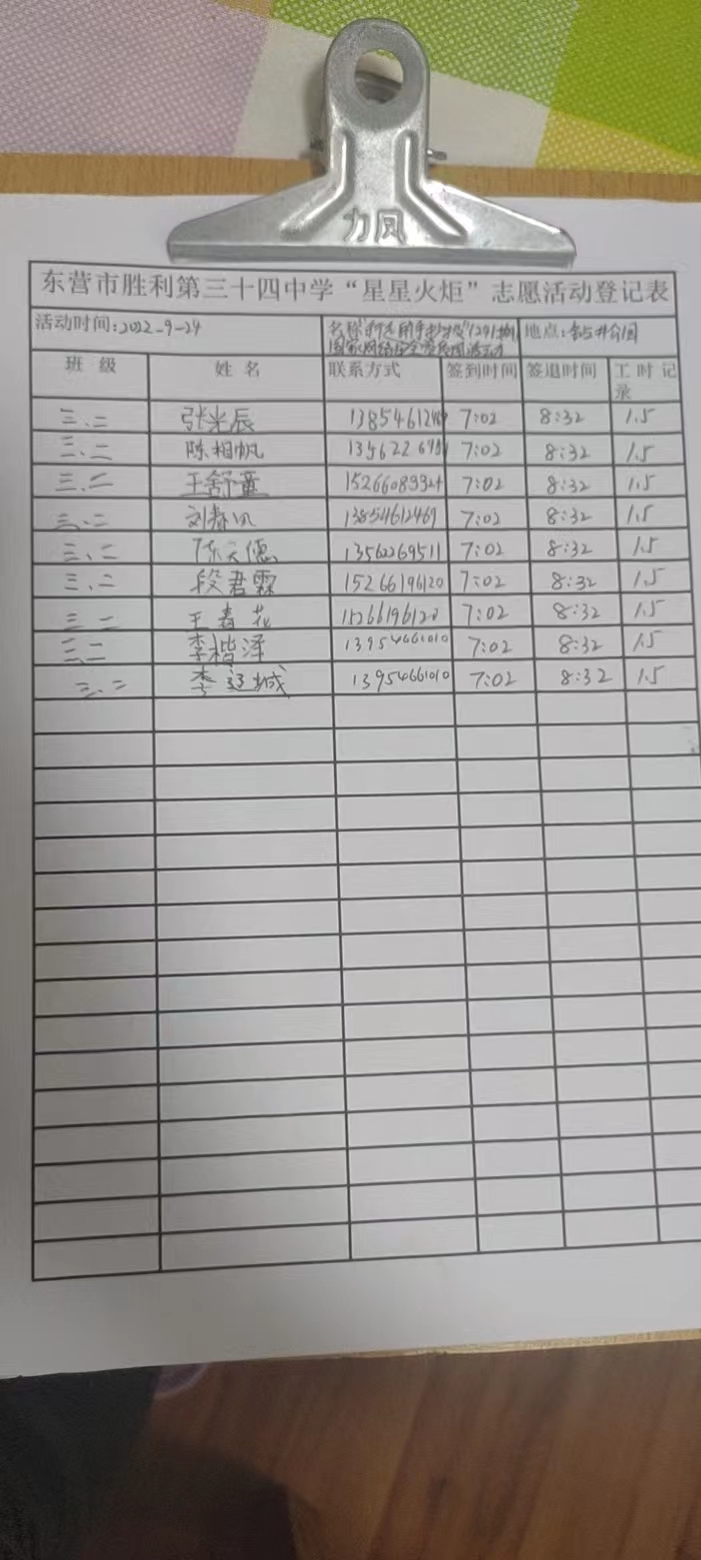 力风
东营市胜利第三十四中学“星星火炬”志愿活动登记表
活动时间:2022-9-24 名称 地点:
班 级 姓 名 联系方式 签到时间 签退时间 工时记录
三.二 张光辰 1385461246 7:02 8:32 1.5
三.二 陈相帆 7:02 8:32 1.5
三.二 王舒童 15266083324 7:02 8:32 1.5
三.二 刘春 13854612469 7:02 8:32 1.5
三.二 陈天德 13562269511 7:02 8:32 1.5
三.二 段君霖 15266196120 7:02 8:32 1.5
三 二 王春花 15266196120 7:02 8:32 1.5
三.二 李楷泽 13954661010 7:02 8:32 1.5
三.二 李 城 13954661010 7:02 8:32 1.5